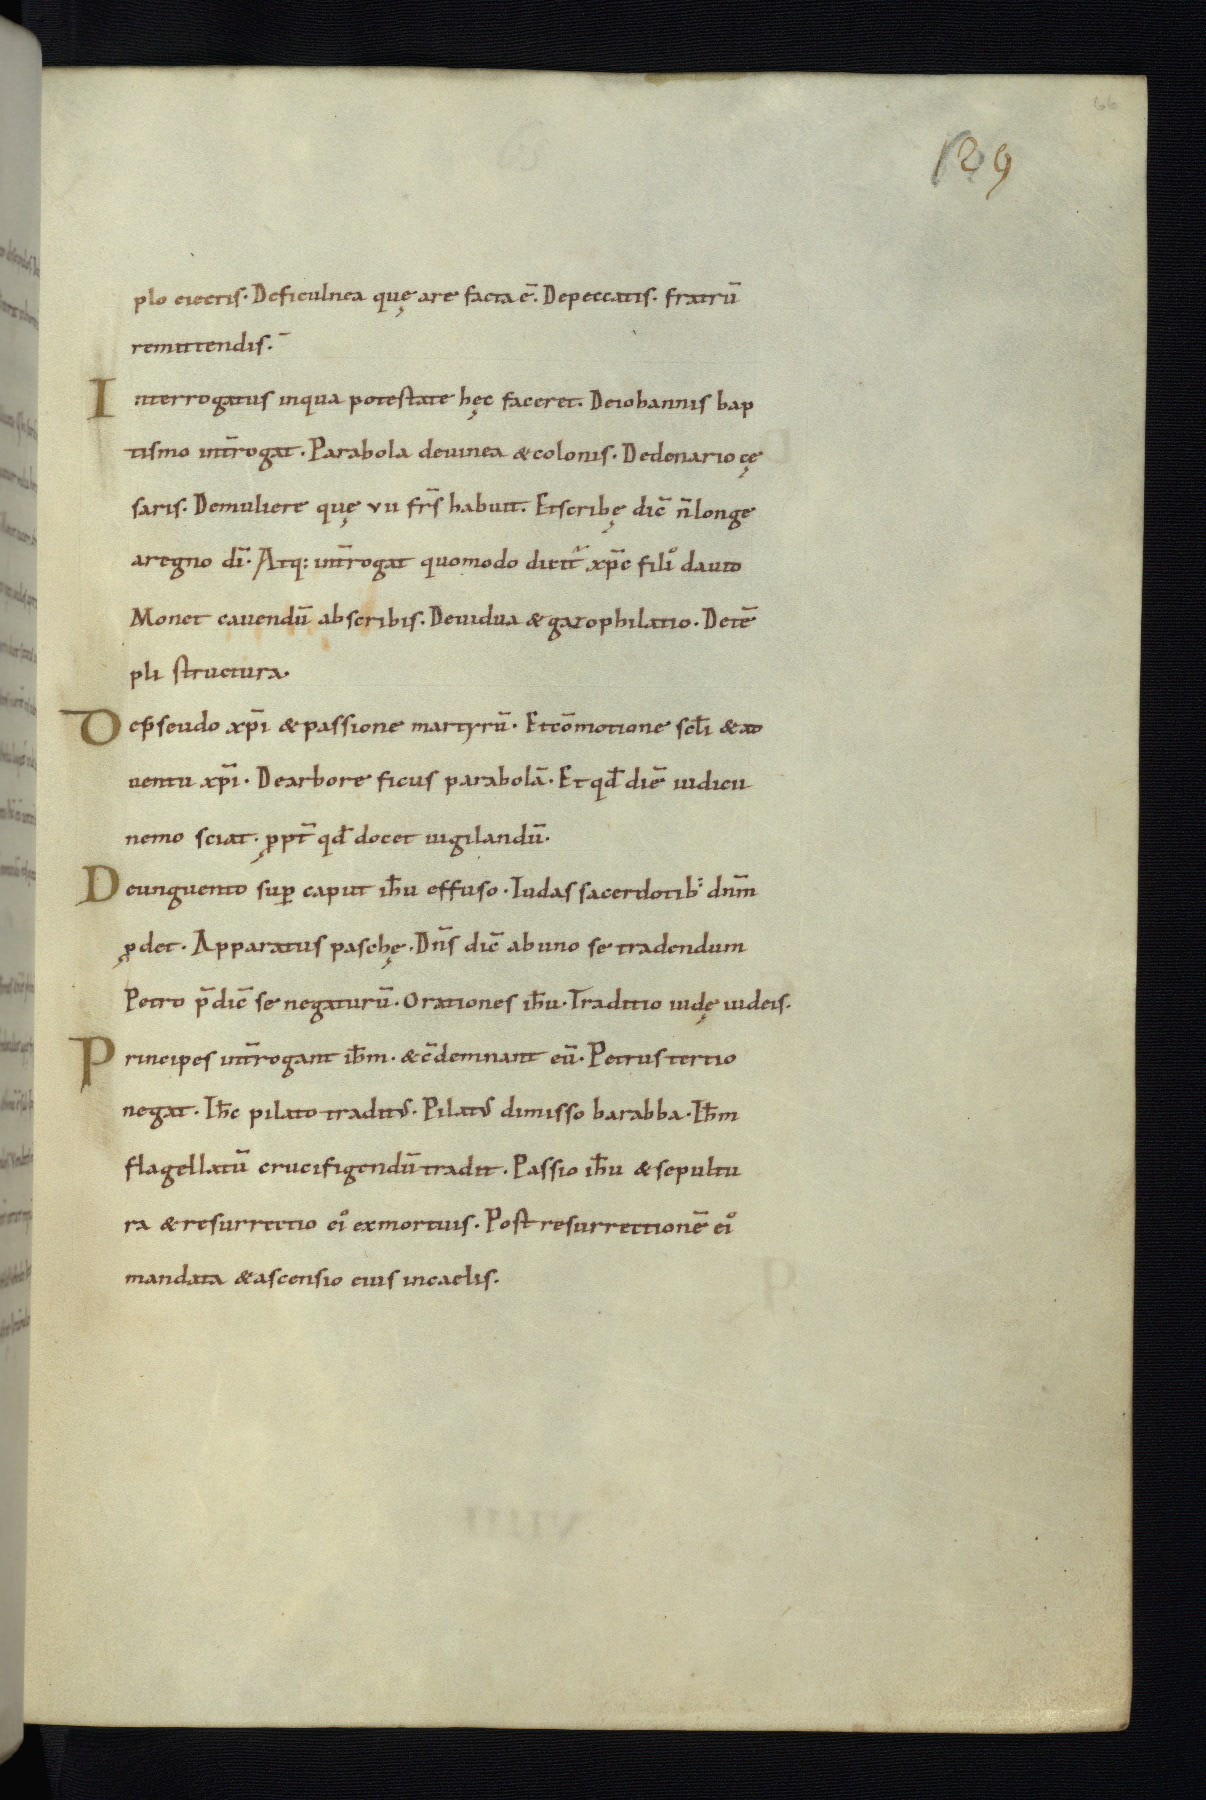 66
129
plo eiectis. Deficulnea quę are facta ē. Depeccatis. fratrū
remittendis.
Interrogatus inqua potestate hęc faceret. Deiohannis bap
tismo int̄rogat. Parabola deuinea &colonis. Dedenario cę
saris. Demuliere quę vii fr̄s habuit. Etscribę dic̄ n̄longe
aregno dī. Atq: int̄rogat quomodo dicit̄ xp̄c filiꝰ dauid
Monet cauendū abscribis. Deuidua &gazophilatio. Detē
pli structura.
Depseudo xp̄i &passione martyrū. Etcōmotione scl̄i &ad
uentu xp̄i. Dearbore ficus parabolā. Et qd̄ diē iudicii
nemo sciat. ꝓpt̄ qd̄ docet uigilandū.
Deunguento suꝑ caput ih̄u effuso. Iudas sacerdotibꝰ dn̄m
ꝓdet. Apparatus paschę. Dn̄s dic̄ abuno se tradendum
Petro p̄dic̄ se negaturū. Orationes ih̄u. Traditio iudę iudeis.
Principes int̄rogant ih̄m. &c̄demnant eū. Petrus tertio
negat. Ih̄c pilato traditꝰ. Pilatꝰ dimisso barabba. Ih̄m
flagellatū crucifigendū tradit. Passio ih̄u &sepultu
ra &resurrectio eiꝰ exmortuis. Post resurrectionē eiꝰ
mandata &ascensio eius incaelis.